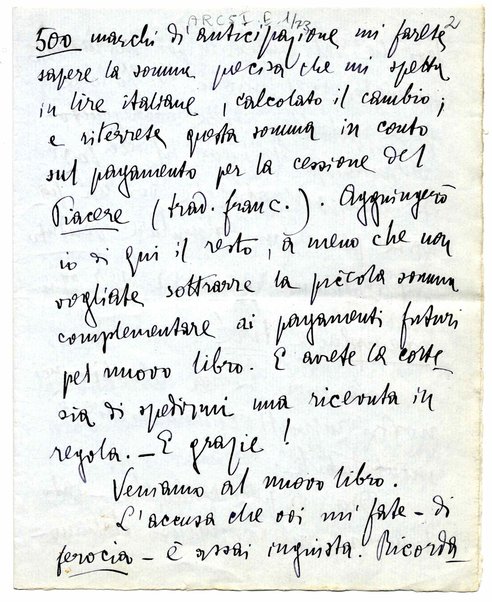 ARCSI.E 1/73
2
500 marchi d'anticipazione mi farete
sapere la somma precisa che mi spetta
in lire italiane, calcolato il cambio;
e riterrete questa somma in conto
sul pagamento per la cessione del
Piacere (trad. franc.). Aggiungerò
io di qui il resto, a meno che non
vogliate sottrarre la piccola somma
complementare ai pagamenti futuri
pel nuovo libro. E avrete la corte-
sia di spedirmi una ricevuta in
regola. — E grazie!
Veniamo al nuovo libro.
L'accusa che voi mi fate – di
ferocia – è assai ingiusta. Ricorda-